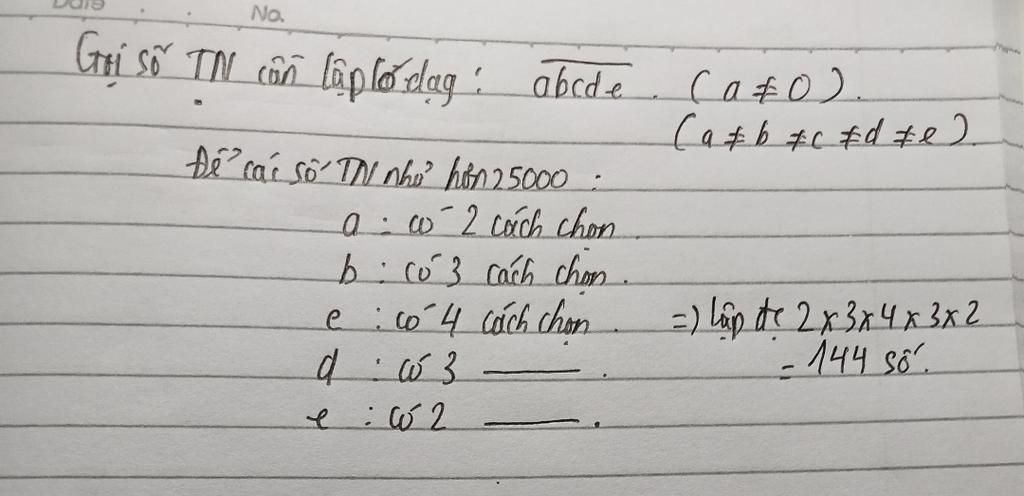 Date . . No.
Gọi số TN cần lập có dạg : abcde . (a ≠ 0).
(a ≠ b ≠ c ≠ d ≠ e).
Để các số TN nhỏ hơn 25000 :
a : có 2 cách chọn.
b : có 3 cách chọn.
e : có 4 cách chọn. => lập đc 2 x 3 x 4 x 3 x 2
d : có 3 ——— . = 144 số.
e : có 2 ——— .